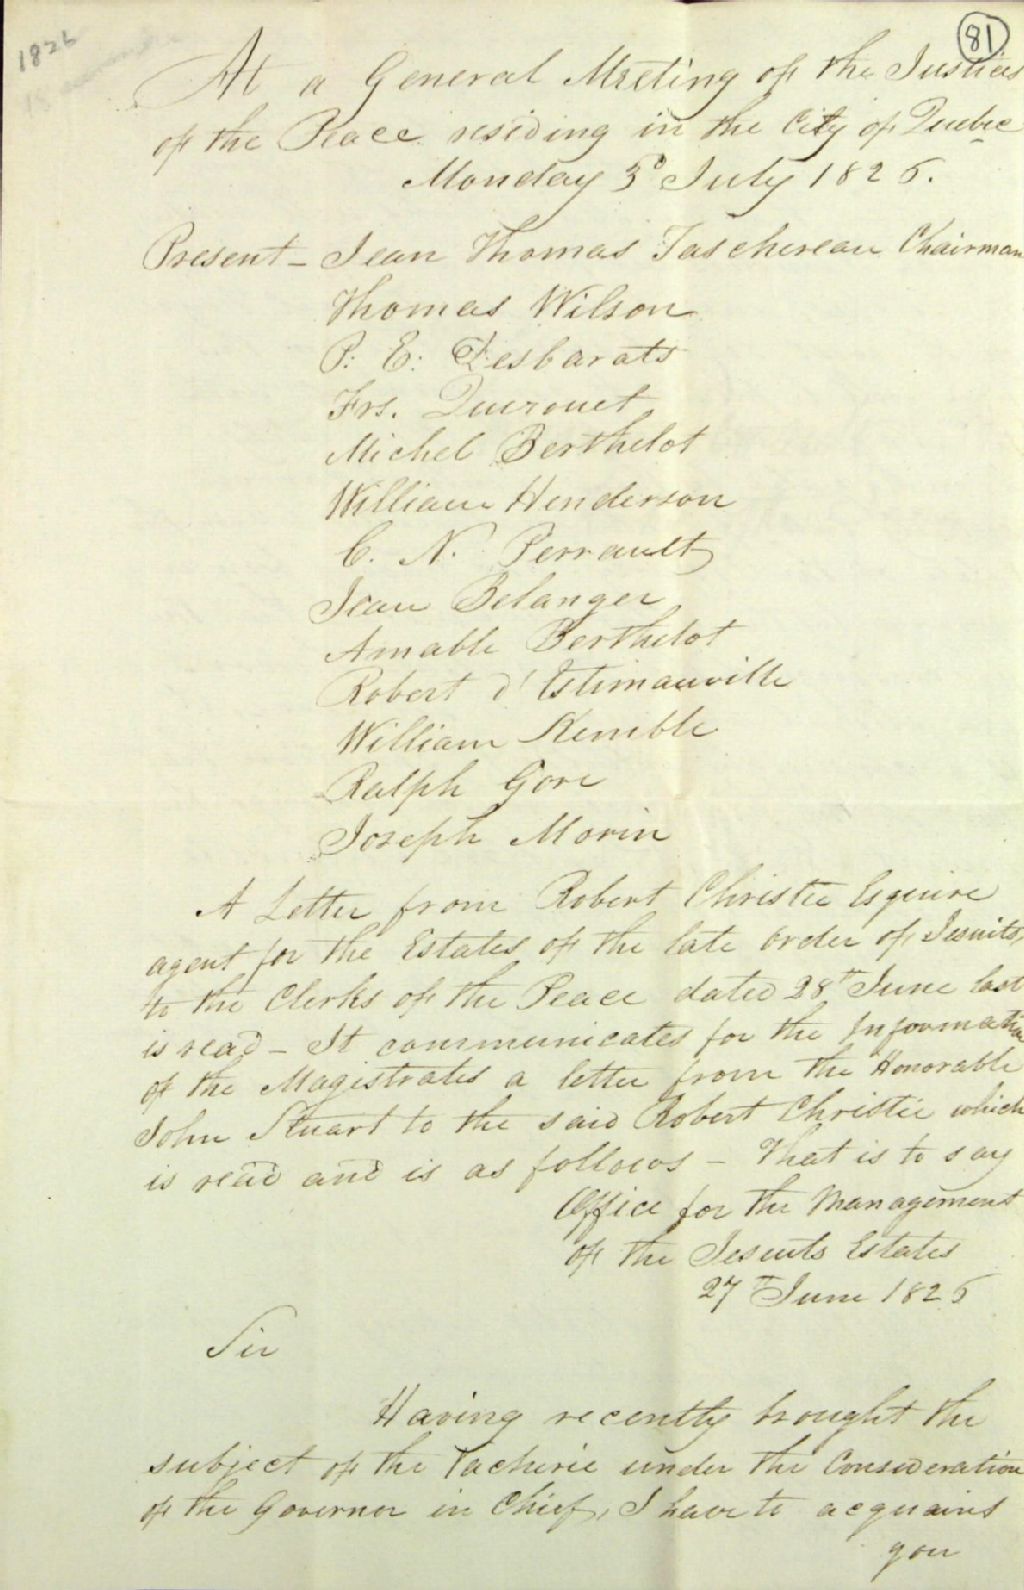 1826
81
At a General Meeting of the Justices
of the Peace residing in the City of Quebec
Monday 3d July 1826.
Present - Jean Thomas Taschereau Chairman
Thomas Wilson
P: E: Desbarats
Frs. Quirouet
Michel Berthelot
William Henderson
C. N. Perrault
Jean Belanger
Amable Berthelot
Robert d'Estimauville
William Kemble
Ralph Gore
Joseph Morin
A Letter from Robert Christie Esquire
agent for the Estates of the late Order of Jesuits,
to the Clerks of the Peace dated 28th June last
is read - It communicates for the Information
of the Magistrates a letter from the Honorable
John Stuart to the said Robert Christie which
is read and is as follows - That is to say
Office for the Management
of the Jesuits Estates
27th June 1826
Sir
Having recently brought the
subject of the Vacherie under the Consideration
of the Governor in Chief, I have to acquaint
you